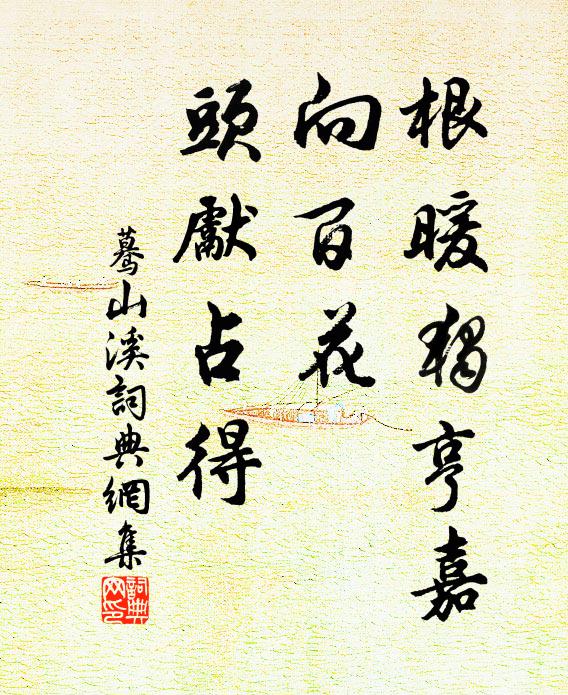 根暖獨亨嘉
向百花
頭獻占得
驀山溪詞典網集
詞典
网印